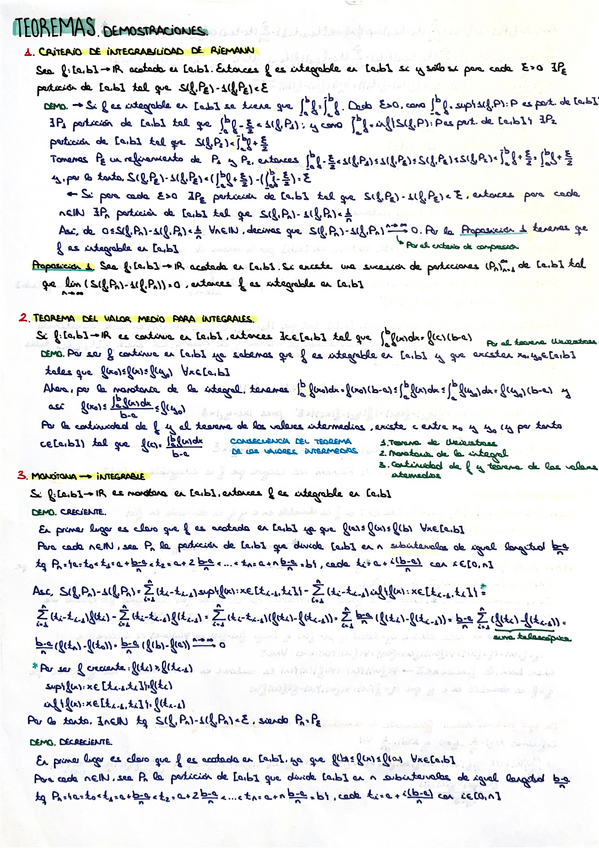 TEOREMAS. DEMOSTRACIONES.
1. CRITERIO DE INTEGRABILIDAD DE RIEMANN
Sea f:[a,b]→ℝ acotada en [a,b]. Entonces f es integrable en [a,b] si y sólo si para cada ε>0 ∃Pε
partición de [a,b] tal que S(f,Pε)-s(f,Pε)<ε
DEMO. → Si f es integrable en [a,b] se tiene que ∫f=∫f. Dado ε>0, como ∫f=sup{s(f,P): P es part. de [a,b]}
∃P₁ partición de [a,b] tal que ∫f-ε/2<s(f,P₁); y como ∫f=inf{S(f,P): P es part. de [a,b]} ∃P₂
partición de [a,b] tal que S(f,P₂)<∫f+ε/2
Tomemos Pε un refinamiento de P₁ y P₂, entonces ∫f-ε/2<s(f,P₁)≤s(f,Pε)≤S(f,Pε)≤S(f,P₂)<∫f+ε/2=∫f+ε/2
y, por lo tanto, S(f,Pε)-s(f,Pε)<(∫f+ε/2)-(∫f-ε/2)=ε
← Si para cada ε>0 ∃Pε partición de [a,b] tal que S(f,Pε)-s(f,Pε)<ε, entonces para cada
n∈ℕ ∃Pₙ partición de [a,b] tal que S(f,Pₙ)-s(f,Pₙ)<1/n
Así, de 0≤S(f,Pₙ)-s(f,Pₙ)<1/n ∀n∈ℕ, decimos que S(f,Pₙ)-s(f,Pₙ) →(n→∞) 0. Por la Proposición 1 tenemos que
f es integrable en [a,b]
Por el criterio de compresión
Proposición 1. Sea f:[a,b]→ℝ acotada en [a,b]. Si existe una sucesión de particiones (Pₙ)ₙ₌₁^∞ de [a,b] tal
que lim(n→∞) (S(f,Pₙ)-s(f,Pₙ))=0, entonces f es integrable en [a,b]
2. TEOREMA DEL VALOR MEDIO PARA INTEGRALES.
Si f:[a,b]→ℝ es continua en [a,b], entonces ∃c∈[a,b] tal que ∫f(x)dx=f(c)(b-a)
Por el teorema Weierstrass
DEMO. Por ser f continua en [a,b] ya sabemos que f es integrable en [a,b] y que existen x₀,y₀∈[a,b]
tales que f(x₀)≤f(x)≤f(y₀) ∀x∈[a,b]
Ahora, por la monotonía de la integral, tenemos ∫f(x₀)dx=f(x₀)(b-a)≤∫f(x)dx≤∫f(y₀)dx=f(y₀)(b-a) y
así f(x₀)≤∫f(x)dx/(b-a)≤f(y₀)
Por la continuidad de f y el teorema de los valores intermedios, existe c entre x₀ y y₀ (y por tanto
c∈[a,b]) tal que f(c)=∫f(x)dx/(b-a)
CONSECUENCIA DEL TEOREMA
DE LOS VALORES INTERMEDIOS
1. Teorema de Weierstrass
2. monotonía de la integral
3. Continuidad de f y teorema de los valores
intermedios
3. MONÓTONA → INTEGRABLE
Si f:[a,b]→ℝ es monótona en [a,b], entonces f es integrable en [a,b]
DEMO. CRECIENTE.
En primer lugar es claro que f es acotada en [a,b] ya que f(a)≤f(x)≤f(b) ∀x∈[a,b]
Para cada n∈ℕ, sea Pₙ la partición de [a,b] que divide [a,b] en n subintervalos de igual longitud (b-a)/n
tq Pₙ={a=t₀<t₁=a+(b-a)/n<t₂=a+2(b-a)/n<...<tₙ=a+n(b-a)/n=b}, cada tᵢ=a+i(b-a)/n con i∈[0,n]
Así, S(f,Pₙ)-s(f,Pₙ)=Σ(tᵢ-tᵢ₋₁)sup{f(x):x∈[tᵢ₋₁,tᵢ]}-Σ(tᵢ-tᵢ₋₁)inf{f(x):x∈[tᵢ₋₁,tᵢ]}=*
Σ(tᵢ-tᵢ₋₁)f(tᵢ)-Σ(tᵢ-tᵢ₋₁)f(tᵢ₋₁)=Σ(tᵢ-tᵢ₋₁)(f(tᵢ)-f(tᵢ₋₁))=Σ(b-a)/n(f(tᵢ)-f(tᵢ₋₁))=(b-a)/n Σ(f(tᵢ)-f(tᵢ₋₁))=
suma telescópica
(b-a)/n(f(tₙ)-f(t₀))=(b-a)/n(f(b)-f(a)) →(n→∞) 0
* Por ser f creciente: f(tᵢ)≥f(tᵢ₋₁)
sup{f(x):x∈[tᵢ₋₁,tᵢ]}=f(tᵢ)
inf{f(x):x∈[tᵢ₋₁,tᵢ]}=f(tᵢ₋₁)
Por lo tanto, ∃n∈ℕ tq S(f,Pₙ)-s(f,Pₙ)<ε, siendo Pₙ=Pε
DEMO. DECRECIENTE.
En primer lugar es claro que f es acotada en [a,b], ya que f(b)≤f(x)≤f(a) ∀x∈[a,b]
Para cada n∈ℕ, sea Pₙ la partición de [a,b] que divide [a,b] en n subintervalos de igual longitud (b-a)/n
tq Pₙ={a=t₀<t₁=a+(b-a)/n<t₂=a+2(b-a)/n<...<tₙ=a+n(b-a)/n=b}, cada tᵢ=a+i(b-a)/n con i∈[0,n]